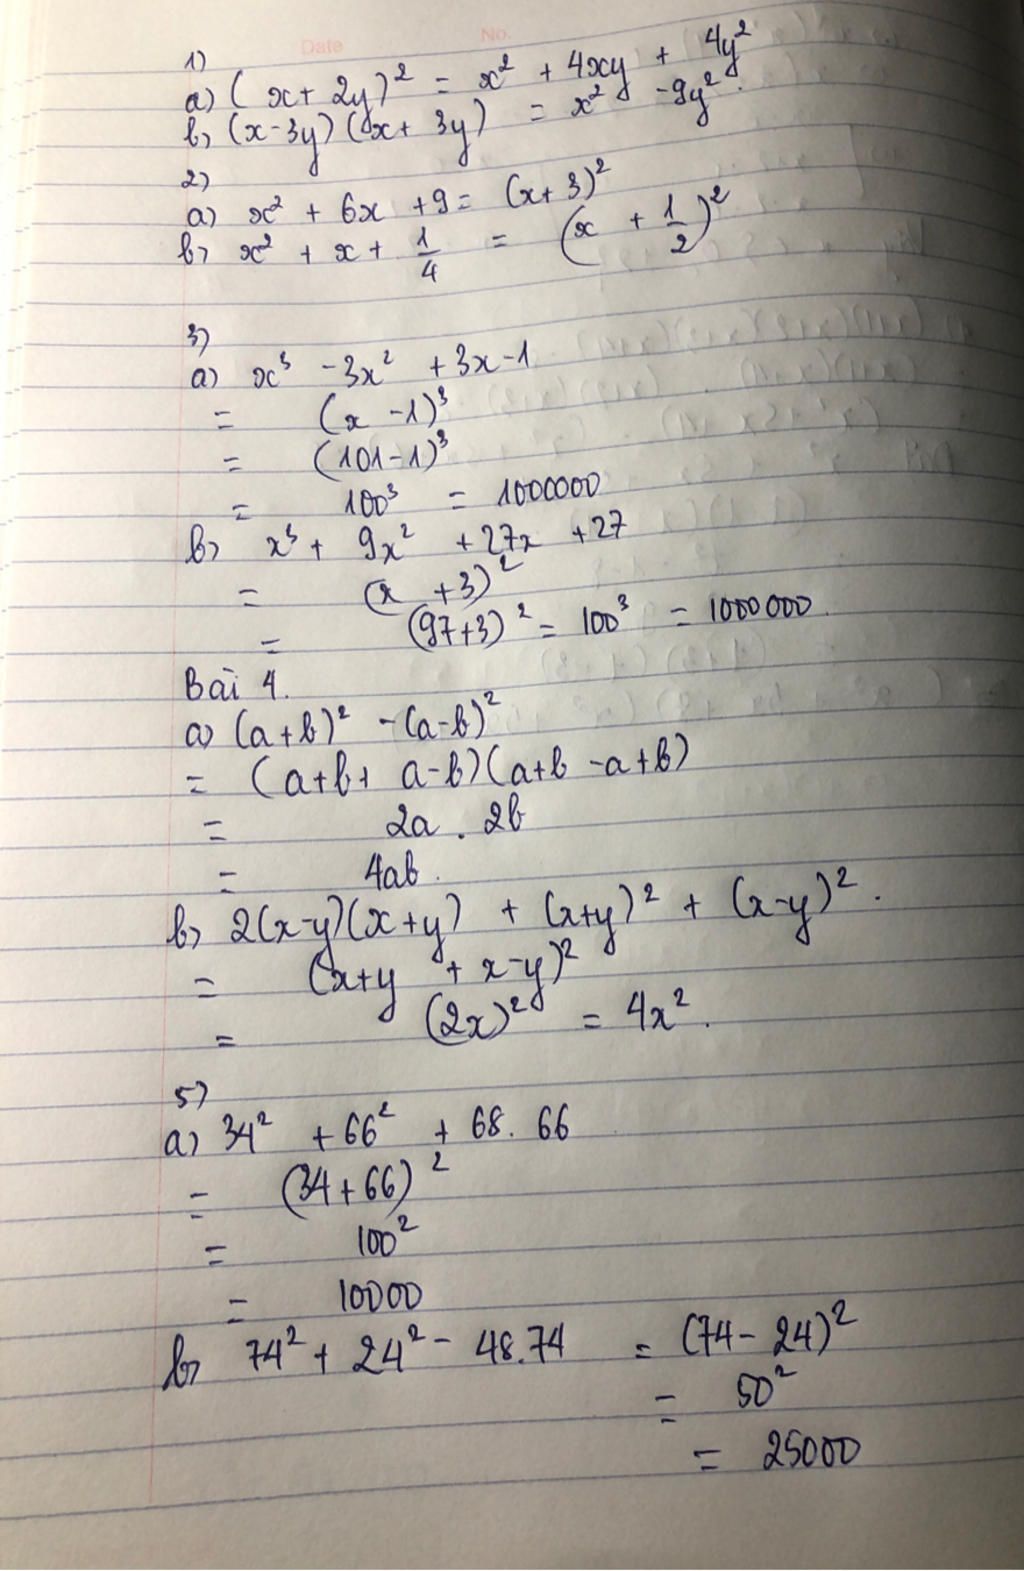 Date No.
1)
a) (x + 2y)² = x² + 4xy + 4y²
b) (x - 3y)(x + 3y) = x² - 9y².
2)
a) x² + 6x + 9 = (x + 3)²
b) x² + x + 1/4 = (x + 1/2)²
3)
a) x³ - 3x² + 3x - 1
= (x - 1)³
= (101 - 1)³
= 100³ = 1000000
b) x³ + 9x² + 27x + 27
= (x + 3)²
= (97 + 3)² = 100³ = 1000000.
Bài 4.
a) (a + b)² - (a - b)²
= (a + b + a - b)(a + b - a + b)
= 2a . 2b
= 4ab.
b) 2(x - y)(x + y) + (x + y)² + (x - y)².
= (x + y + x - y)²
= (2x)² = 4x².
5)
a) 34² + 66² + 68. 66
= (34 + 66)²
= 100²
= 10000
b) 74² + 24² - 48.74 = (74 - 24)²
= 50²
= 25000